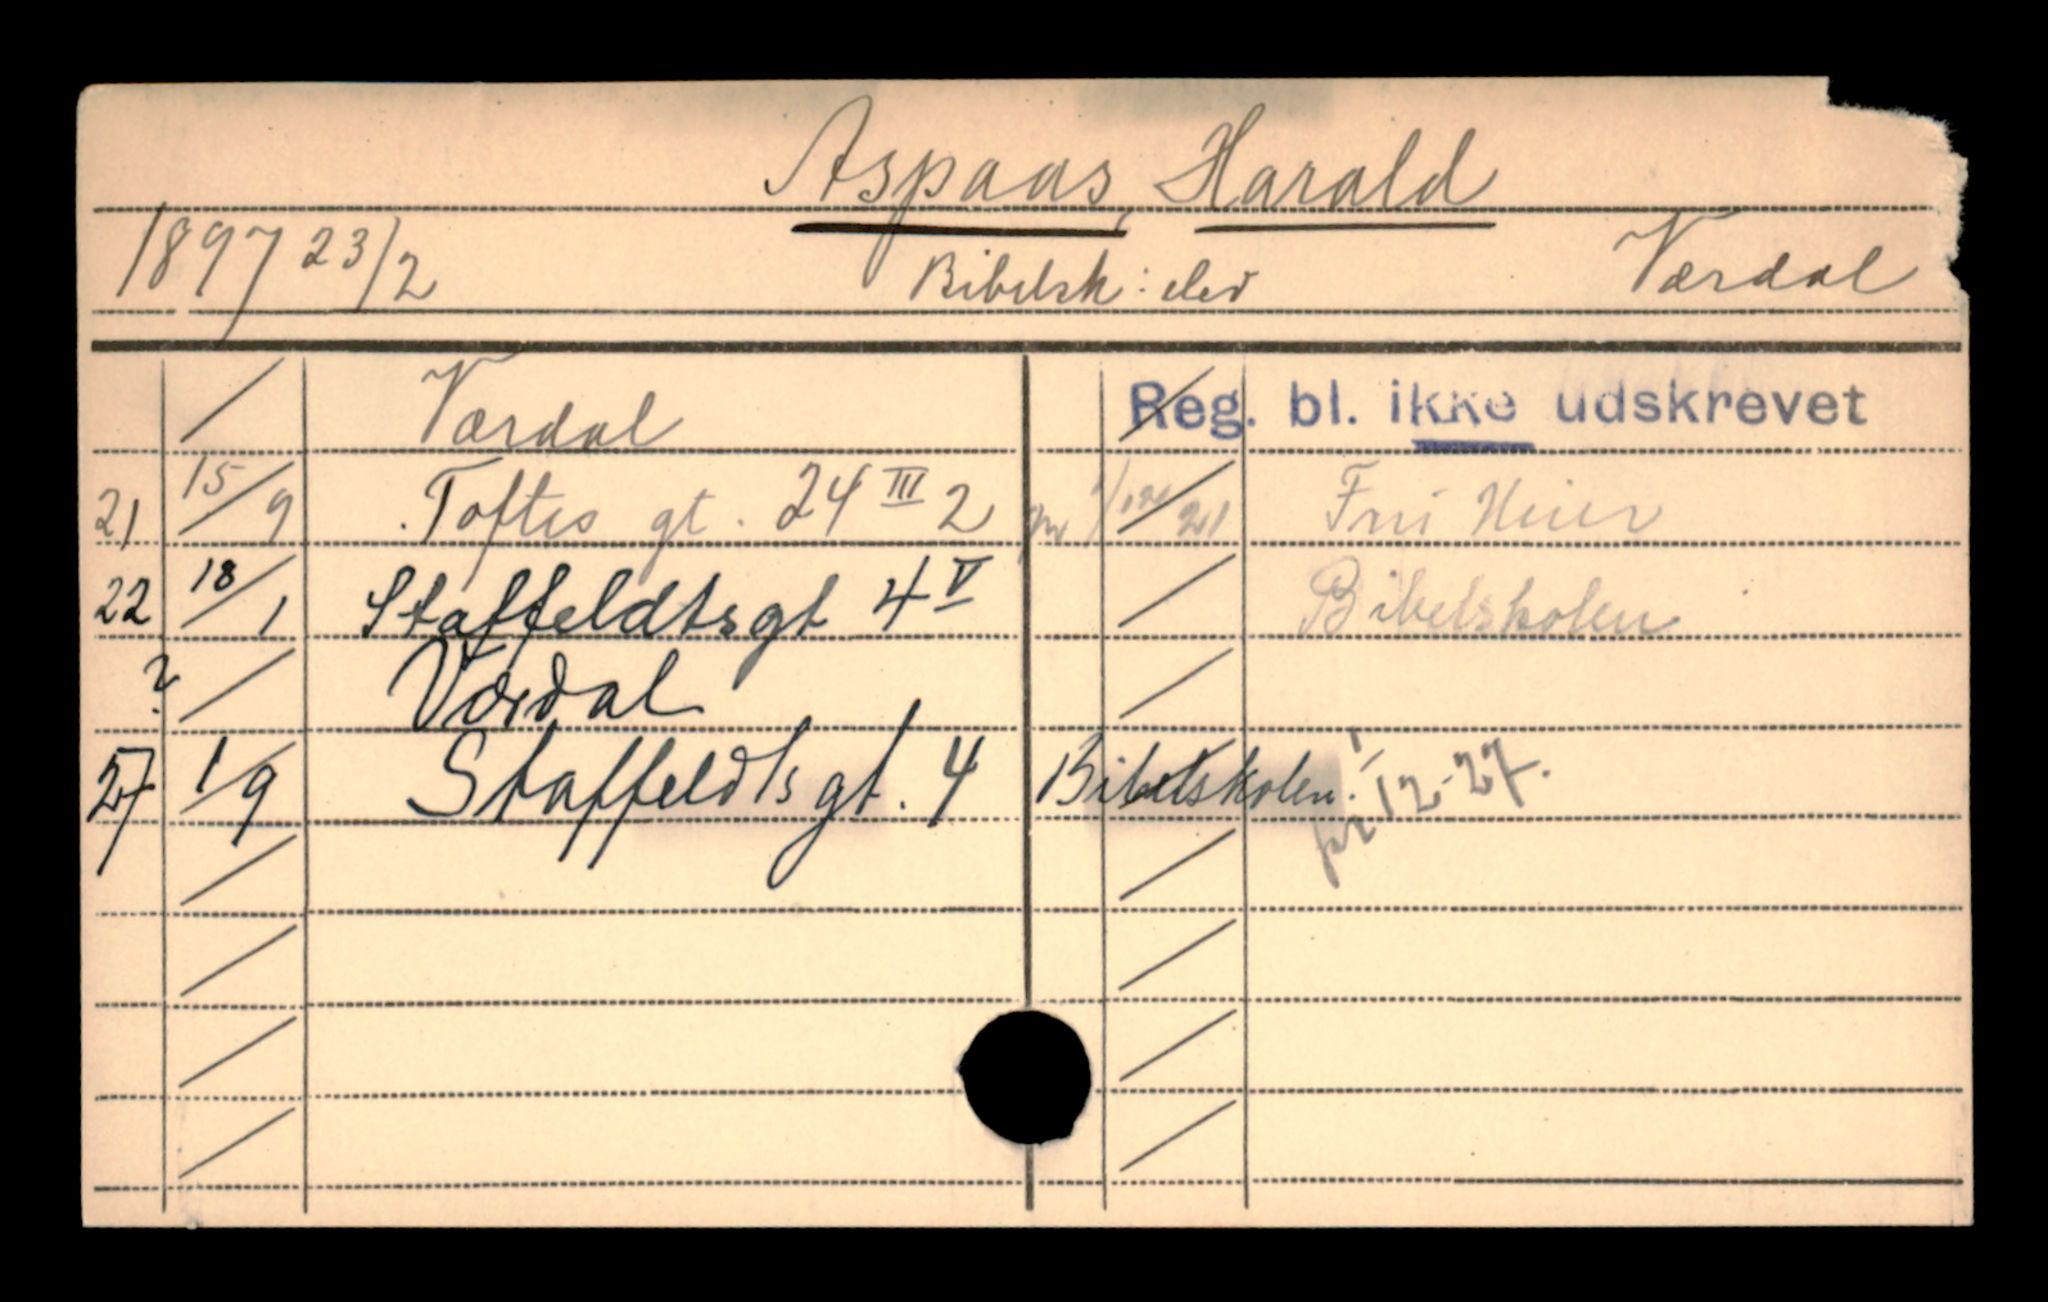 Aspaas, Harald
1897 23/2 Bibelsk: elev Værdal
Værdal Reg. bl. ikke udskrevet
21 15/9 Toftes gt. 24 III 2 pr 1/12 21
22 18/1 Staffeldtsgt 4 V Bibelskolen
? Værdal
27 1/9 Staffeldtsgt. 4 Bibelskolen. pr 1/12-27.